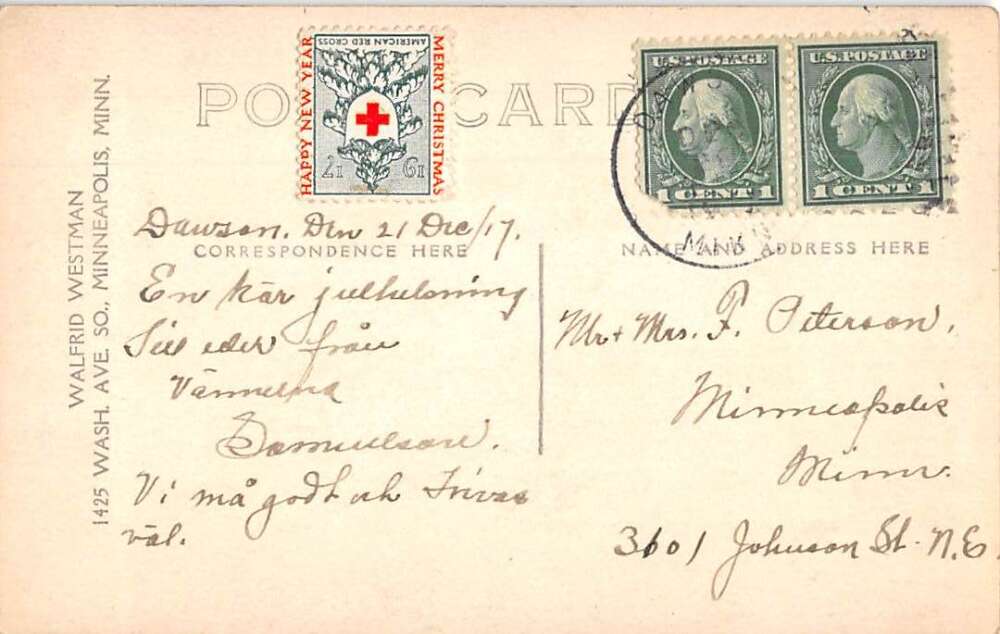 POST CARD
HAPPY NEW YEAR
AMERICAN RED CROSS
MERRY CHRISTMAS
U.S. POSTAGE
1 CENT 1
U.S. POSTAGE
1 CENT 1
DAWSON
MINN
WALFRID WESTMAN
1425 WASH. AVE. SO., MINNEAPOLIS, MINN.
Dawson. Den 21 Dec/17.
CORRESPONDENCE HERE
En kär julhelsning
Till eder från
Vännerna
Samuelson.
Vi må godt och Trivas
väl.
NAME AND ADDRESS HERE
Mr + Mrs. F. Peterson,
Minneapolis
Minn.
3601 Johnson St. N.E.